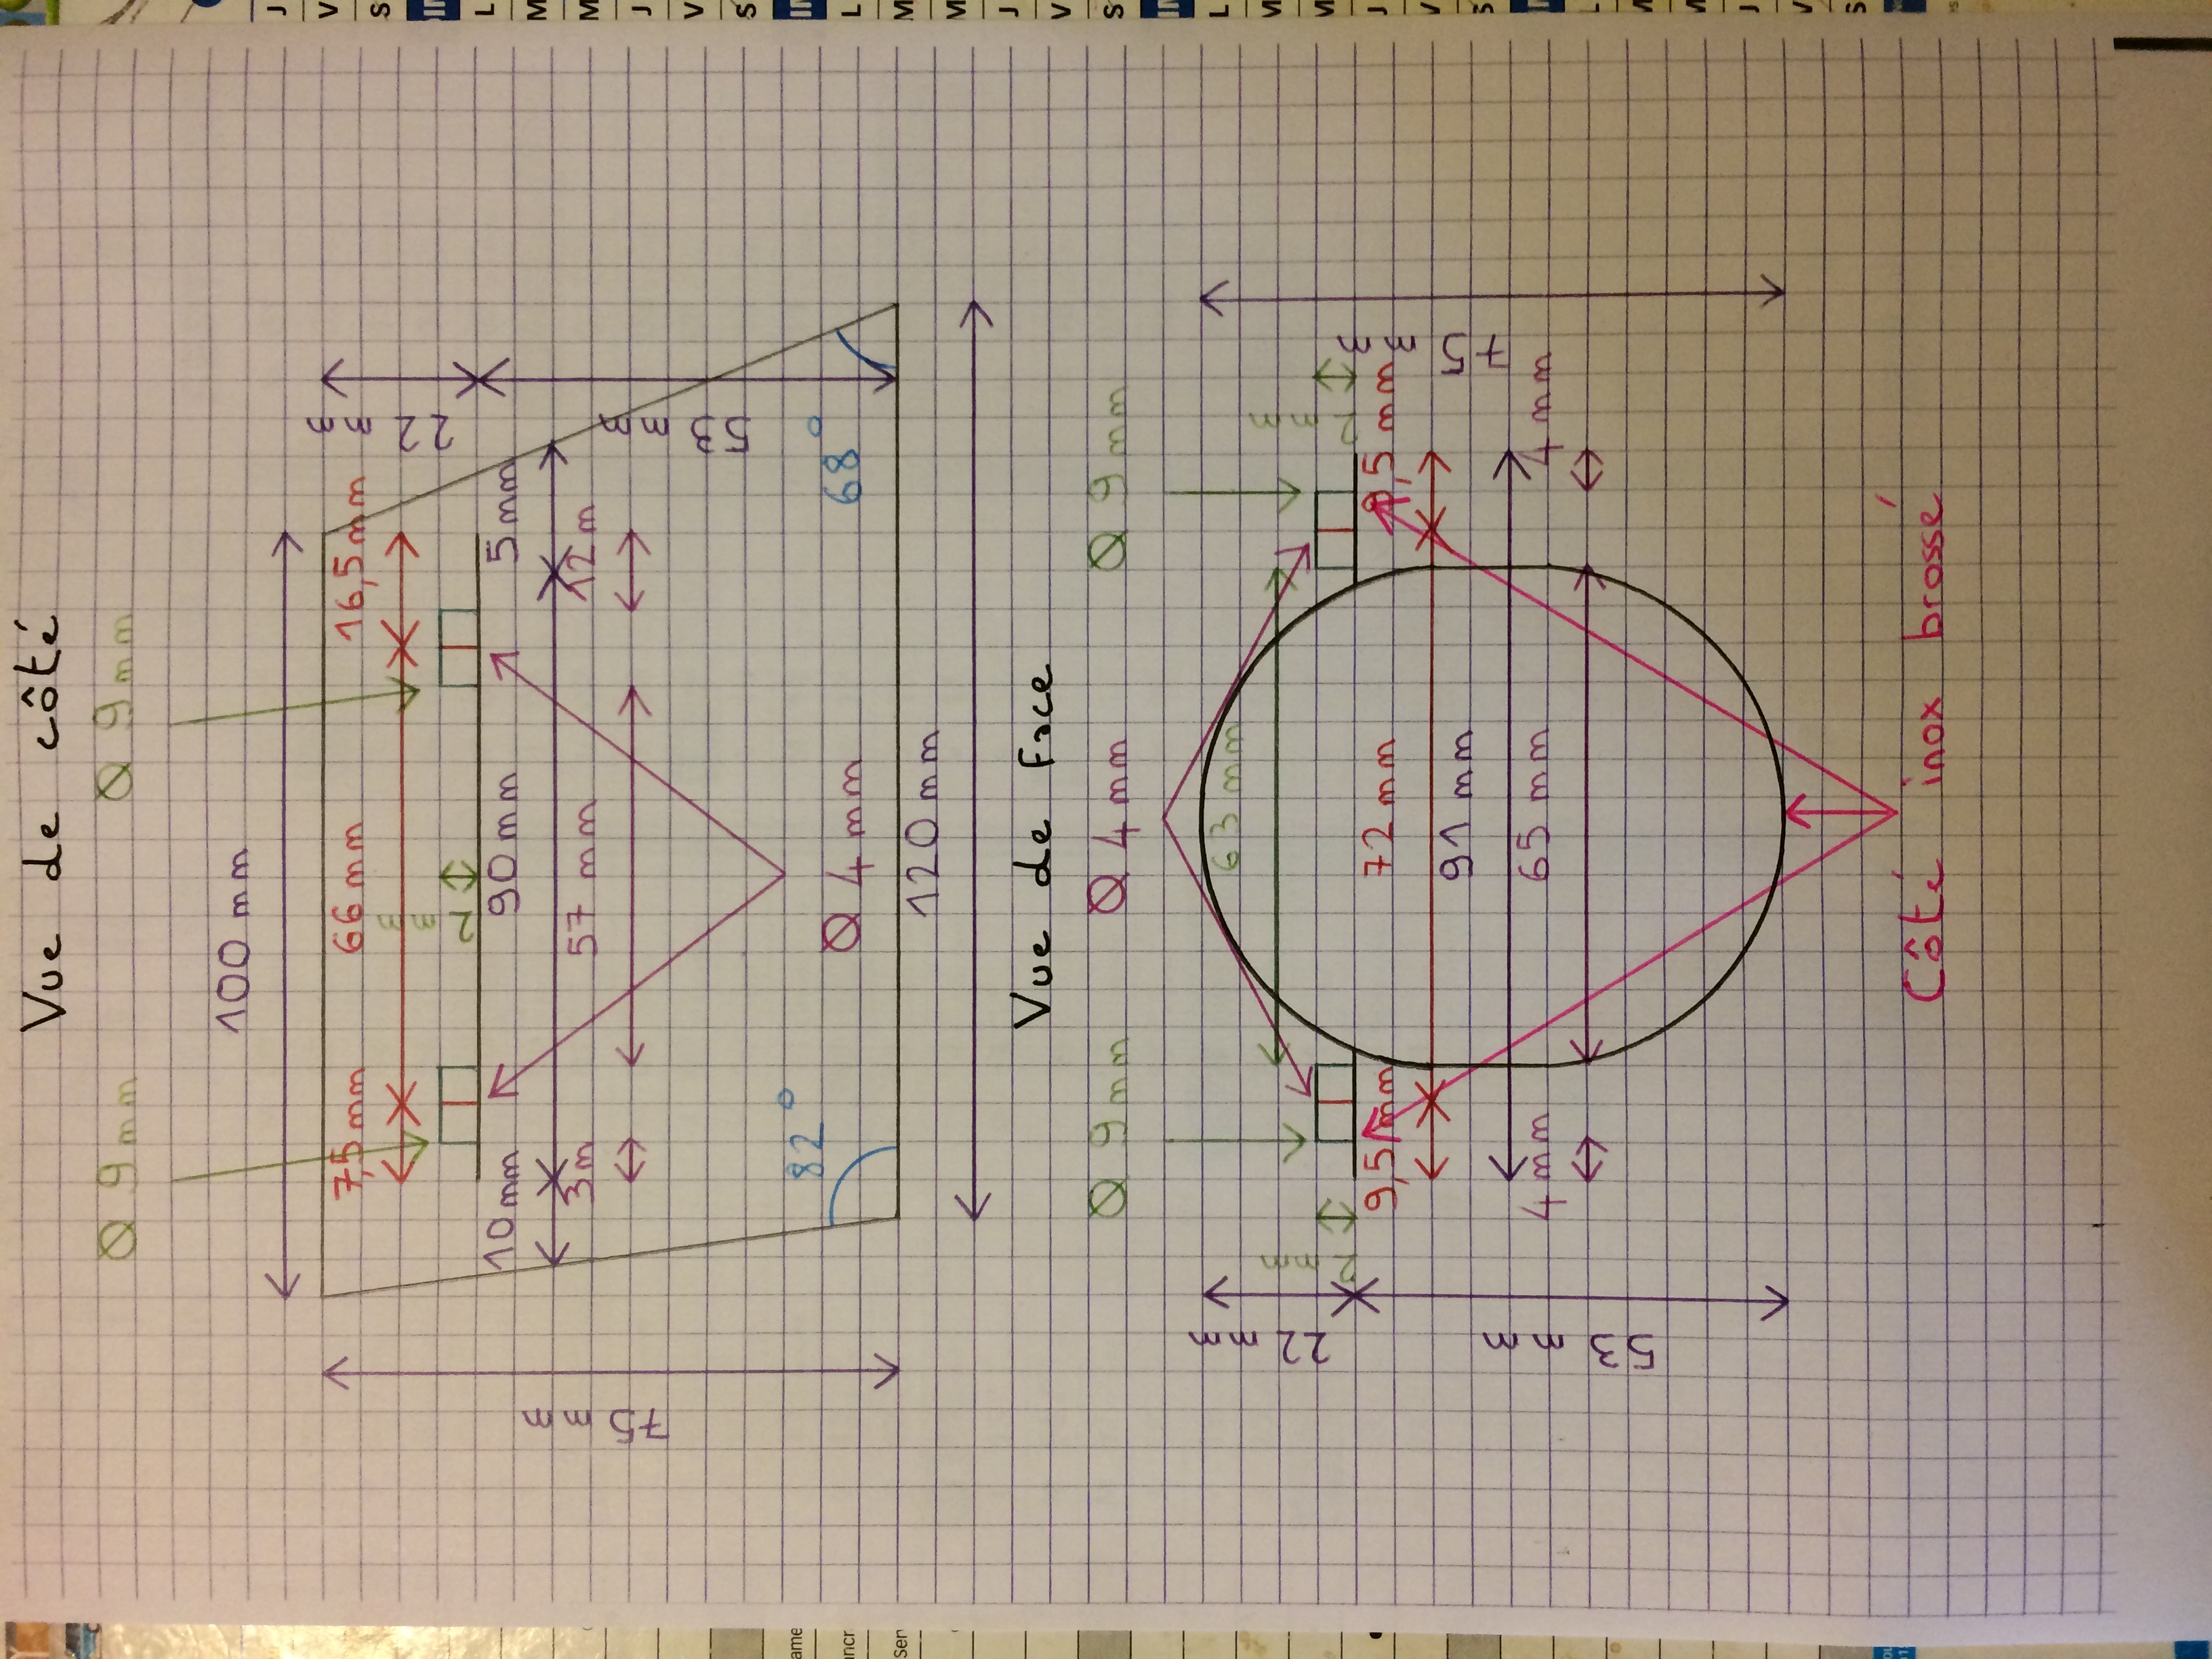 Vue de côté
Ø 9 mm
Ø 9 mm
100 mm
7,5 mm
66 mm
16,5 mm
22 mm
2 mm
10 mm
90 mm
5 mm
3 m
57 mm
12 m
53 mm
82°
68°
Ø 4 mm
120 mm
75 mm
Vue de face
Ø 9 mm
Ø 4 mm
Ø 9 mm
63 mm
22 mm
2 mm
2 mm
75 mm
9,5 mm
72 mm
9,5 mm
91 mm
4 mm
65 mm
4 mm
53 mm
Côté inox brossé
J
V
S
L
M
M
J
V
S
L
M
M
J
V
S
L
J
V
S
J
V
S